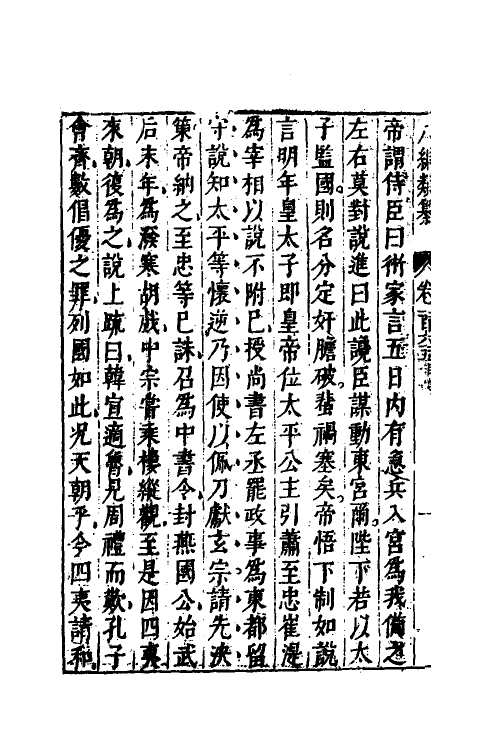 八編類纂　卷一百六五
帝謂侍臣曰術家言五日內有急兵入宮爲我備之
左右莫對說進曰此讒臣謀動東宮爾陛下若以太
子監國則名分定奸膽破蜚禍塞矣帝悟下制如說
言明年皇太子即皇帝位太平公主引蕭至忠崔湜
爲宰相以說不附已授尚書左丞罷政事爲東都留
守說知太平等懷逆乃因使以佩刀獻玄宗請先決
策帝納之至忠等已誅召爲中書令封燕國公始武
后末年爲潑寒胡戲中宗嘗乘樓縱觀至是因四夷
來朝復爲之說上疏曰韓宣適魯見周禮而歎孔子
會齊數倡優之罪列國如此况天朝乎今四夷請和